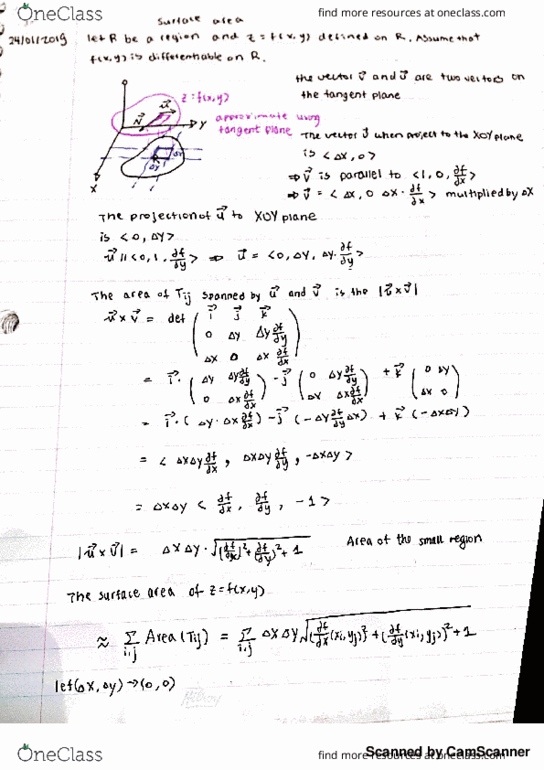 OneClass
find more resources at oneclass.com
Surface area
24/01/2019 let R be a region and z = f(x,y) defined on R. Assume that
f(x,y) is differentiable on R.
the vector v⃗ and u⃗ are two vectors on
the tangent plane
z = f(x,y)
approximate using
tangent plane
y
x
The vector v⃗ when project to the XOY plane
is <Δx, 0>
⇒ v⃗ is parallel to <1, 0, ∂f/∂x>
⇒ v⃗ = <Δx, 0 Δx · ∂f/∂x> multiplied by Δx
The projection of u⃗ to XOY plane
is <0, Δy>
u⃗ // <0, 1, ∂f/∂y> ⇒ u⃗ = <0, Δy, Δy · ∂f/∂y>
The area of Tij spanned by u⃗ and v⃗ is the |u⃗ × v⃗|
u⃗ × v⃗ = det ( i⃗ j⃗ k⃗
0 Δy Δy ∂f/∂y
Δx 0 Δx ∂f/∂x )
= i⃗ · ( Δy Δy ∂f/∂y - j⃗ ( 0 Δy ∂f/∂y + k⃗ ( 0 Δy
0 Δx ∂f/∂x ) Δx Δx ∂f/∂x ) Δx 0 )
= i⃗ · (Δy · Δx ∂f/∂x) - j⃗ (-Δy ∂f/∂y Δx) + k⃗ (-ΔxΔy)
= <ΔxΔy ∂f/∂x, ΔxΔy ∂f/∂y, -ΔxΔy>
= ΔxΔy <∂f/∂x, ∂f/∂y, -1>
|u⃗ × v⃗| = ΔxΔy · √((∂f/∂x)² + (∂f/∂y)² + 1) Area of the small region
The surface area of z = f(x,y)
≈ Σ i,j Area(Tij) = Σ i,j ΔxΔy √((∂f/∂x (xi, yj))² + (∂f/∂y (xi, yj))² + 1)
let (Δx, Δy) → (0, 0)
Hilroy
OneClass
find more resources at oneclass.com
Scanned by CamScanner